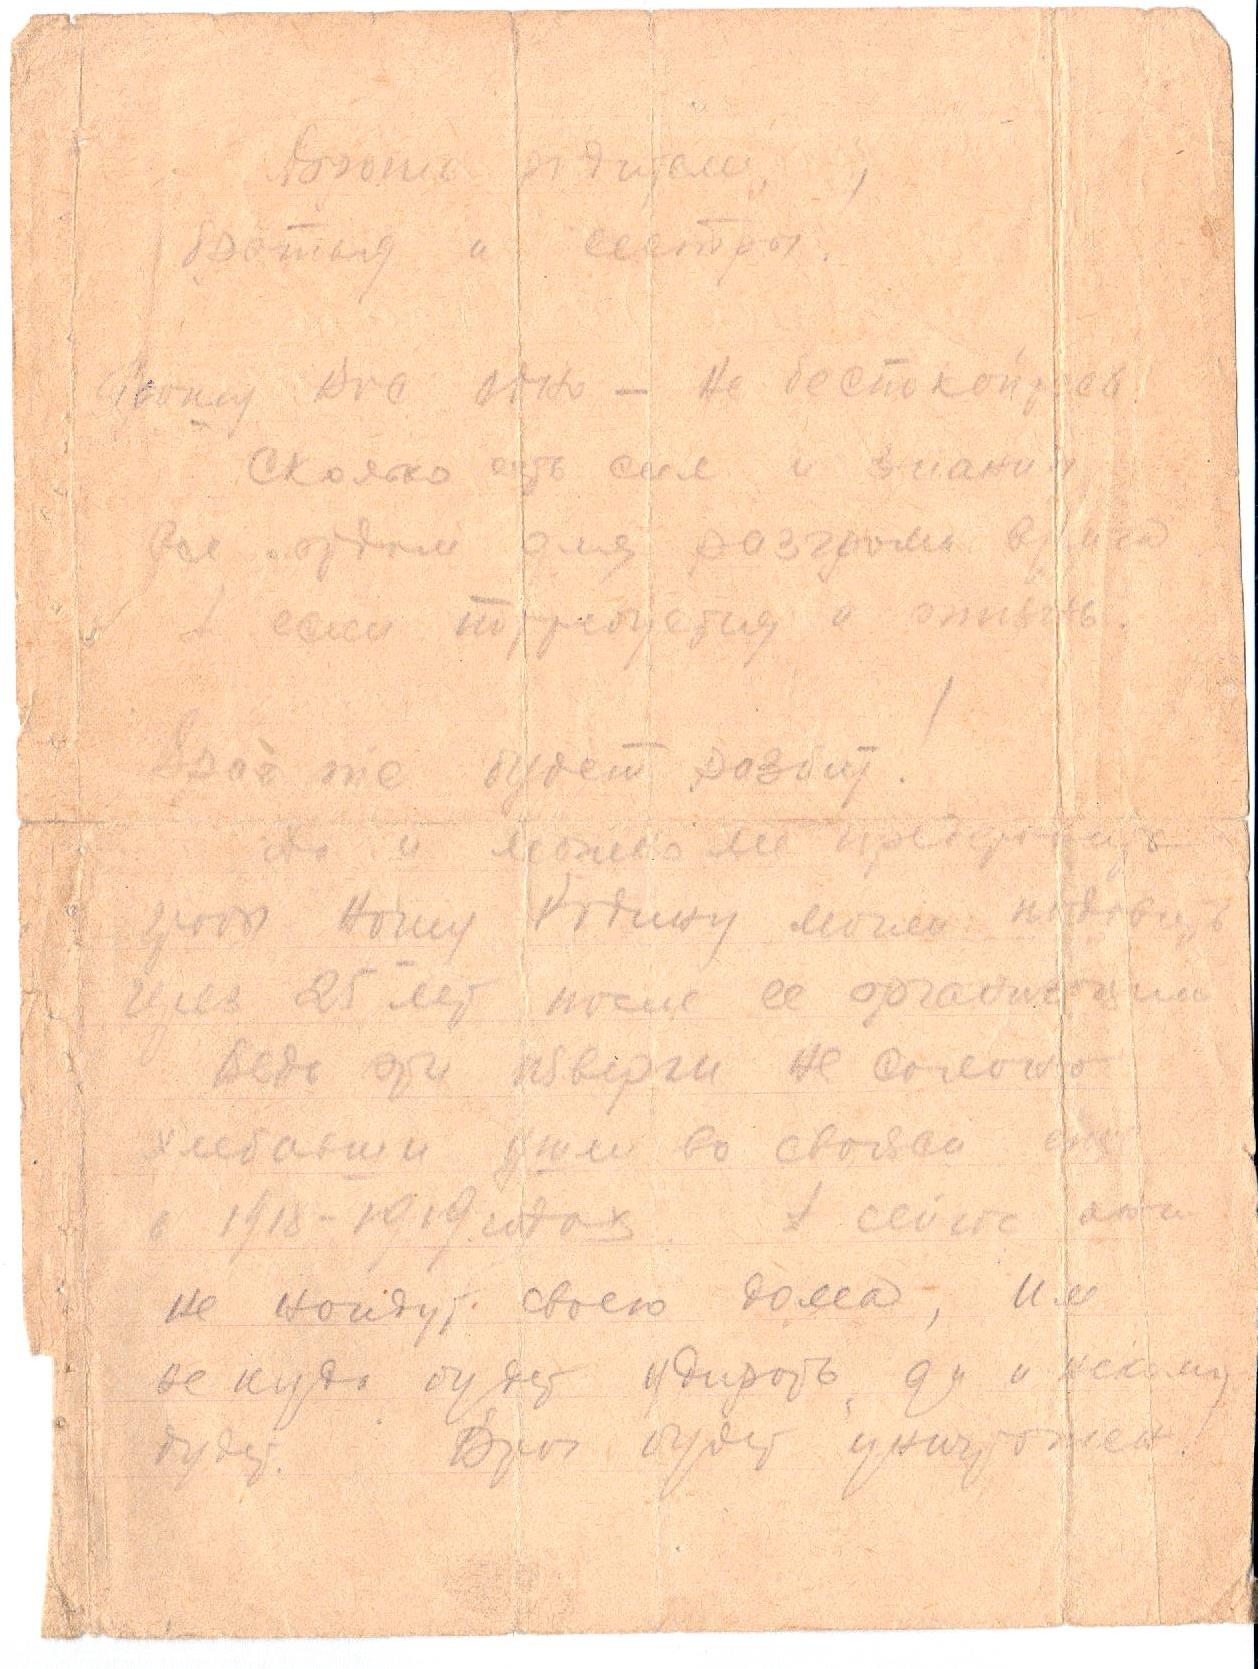 родители,
братья и сестры.
Прошу Вас одно – не беспокойтесь
Сколько есть сил и знания
все отдам для разгрома врага
А если потребуется и жизнь.
Враг же будет разбит!
Да и можно ли представить
чтобы нашу Родину могли подавить
через 25 лет после ее организации
Ведь эти изверги не солоно
хлебавши ушли во свояси еще
в 1918-1919 годах. А сейчас они
не найдут своего дома, им
некуда будет удирать, да и некому
будет. Враг будет уничтожен!